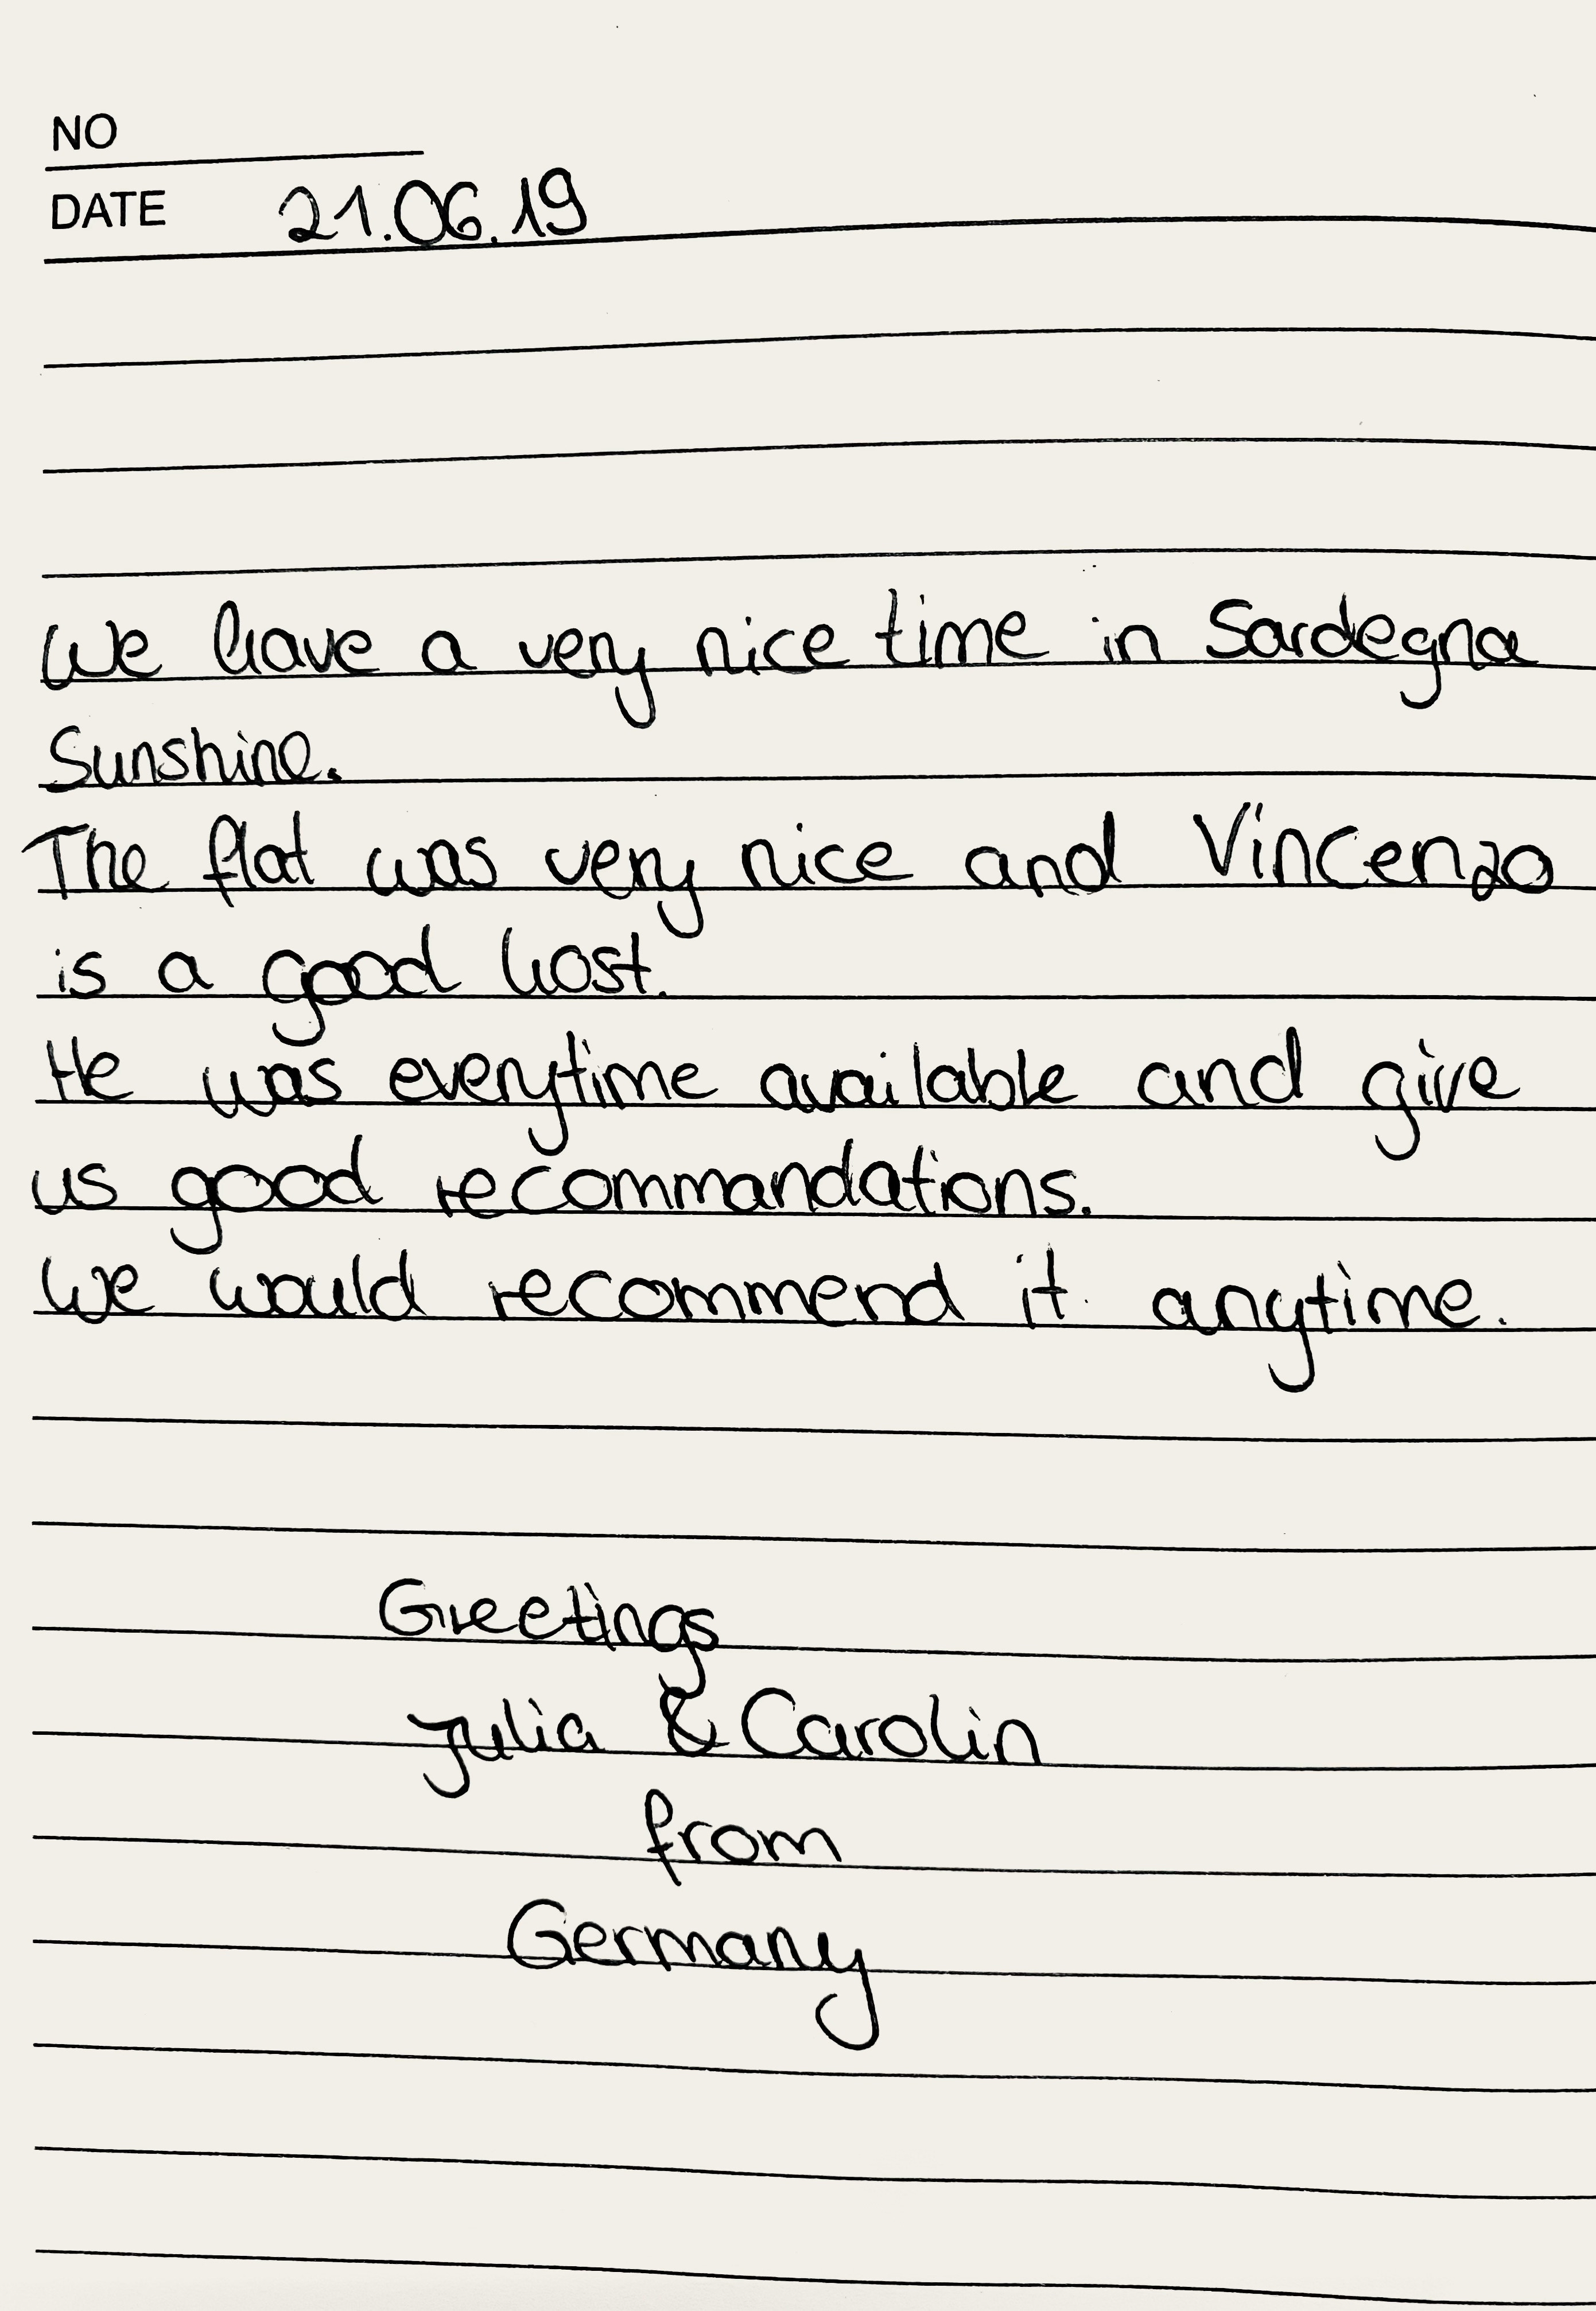 NO
DATE 21.06.19
We have a very nice time in Sardegna
Sunshine.
The flat was very nice and Vincenzo
is a good host.
He was everytime available and give
us good recommandations.
We would recommend it anytime.
Greetings
Julia & Carolin
from
Germany